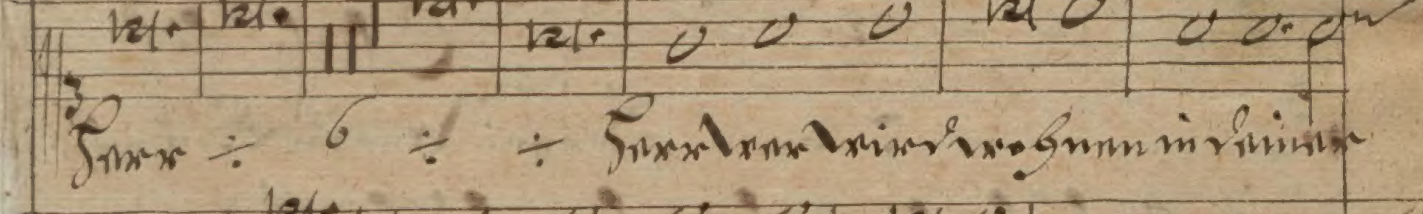 Herr ÷ 6 ÷ ÷ Herr wer wird wohnen in deiner